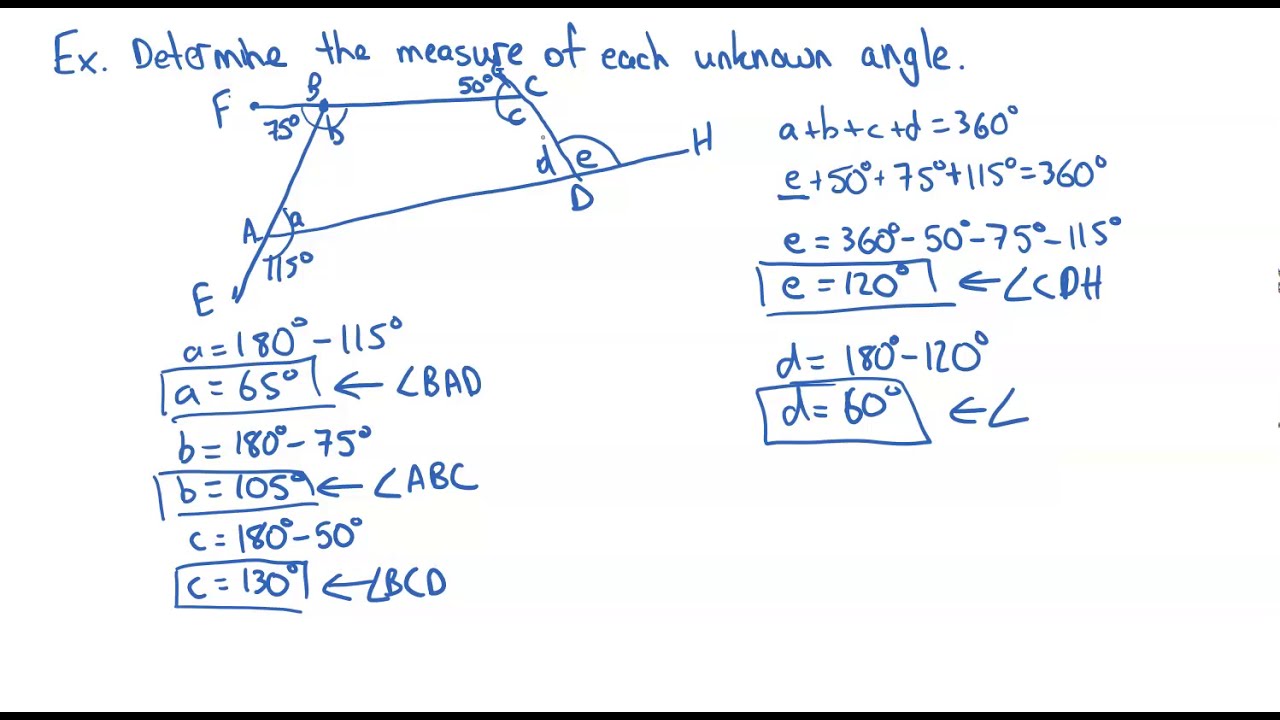 Ex. Determine the measure of each unknown angle.
F
B
50°
G
C
75°
b
c
d
e
H
D
A
a
115°
E
a = 180° - 115°
a = 65° ← ∠BAD
b = 180° - 75°
b = 105° ← ∠ABC
c = 180° - 50°
c = 130° ← ∠BCD
a + b + c + d = 360°
e + 50° + 75° + 115° = 360°
e = 360° - 50° - 75° - 115°
e = 120° ← ∠CDH
d = 180° - 120°
d = 60° ← ∠